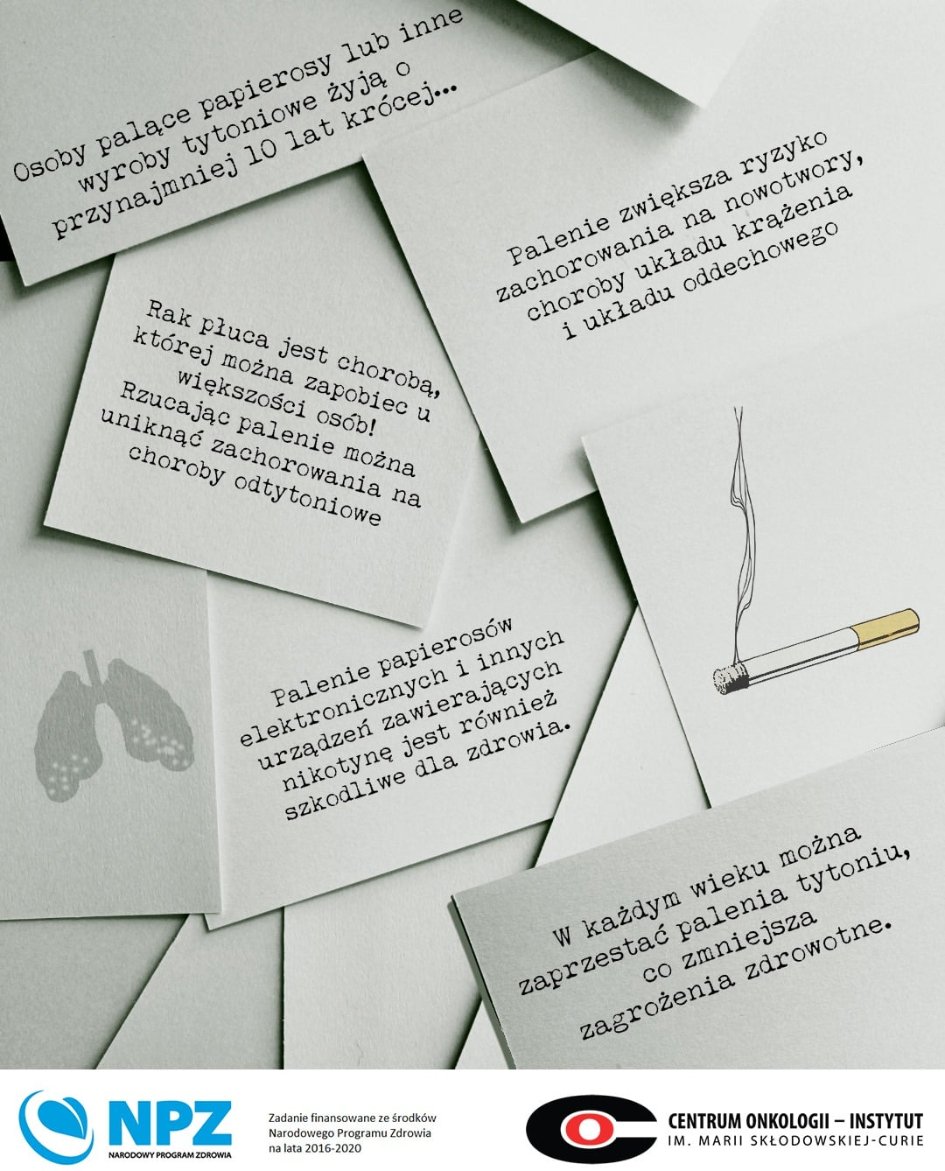 Osoby palące papierosy lub inne
wyroby tytoniowe żyją o
przynajmniej 10 lat krócej...
Palenie zwiększa ryzyko
zachorowania na nowotwory,
choroby układu krążenia
i układu oddechowego
Rak płuca jest chorobą,
której można zapobiec u
większości osób!
Rzucając palenie można
uniknąć zachorowania na
choroby odtytoniowe
Palenie papierosów
elektronicznych i innych
urządzeń zawierających
nikotynę jest również
szkodliwe dla zdrowia.
W każdym wieku można
zaprzestać palenia tytoniu,
co zmniejsza
zagrożenia zdrowotne.
NPZ
NARODOWY PROGRAM ZDROWIA
Zadanie finansowane ze środków
Narodowego Programu Zdrowia
na lata 2016-2020
CENTRUM ONKOLOGII – INSTYTUT
IM. MARII SKŁODOWSKIEJ-CURIE